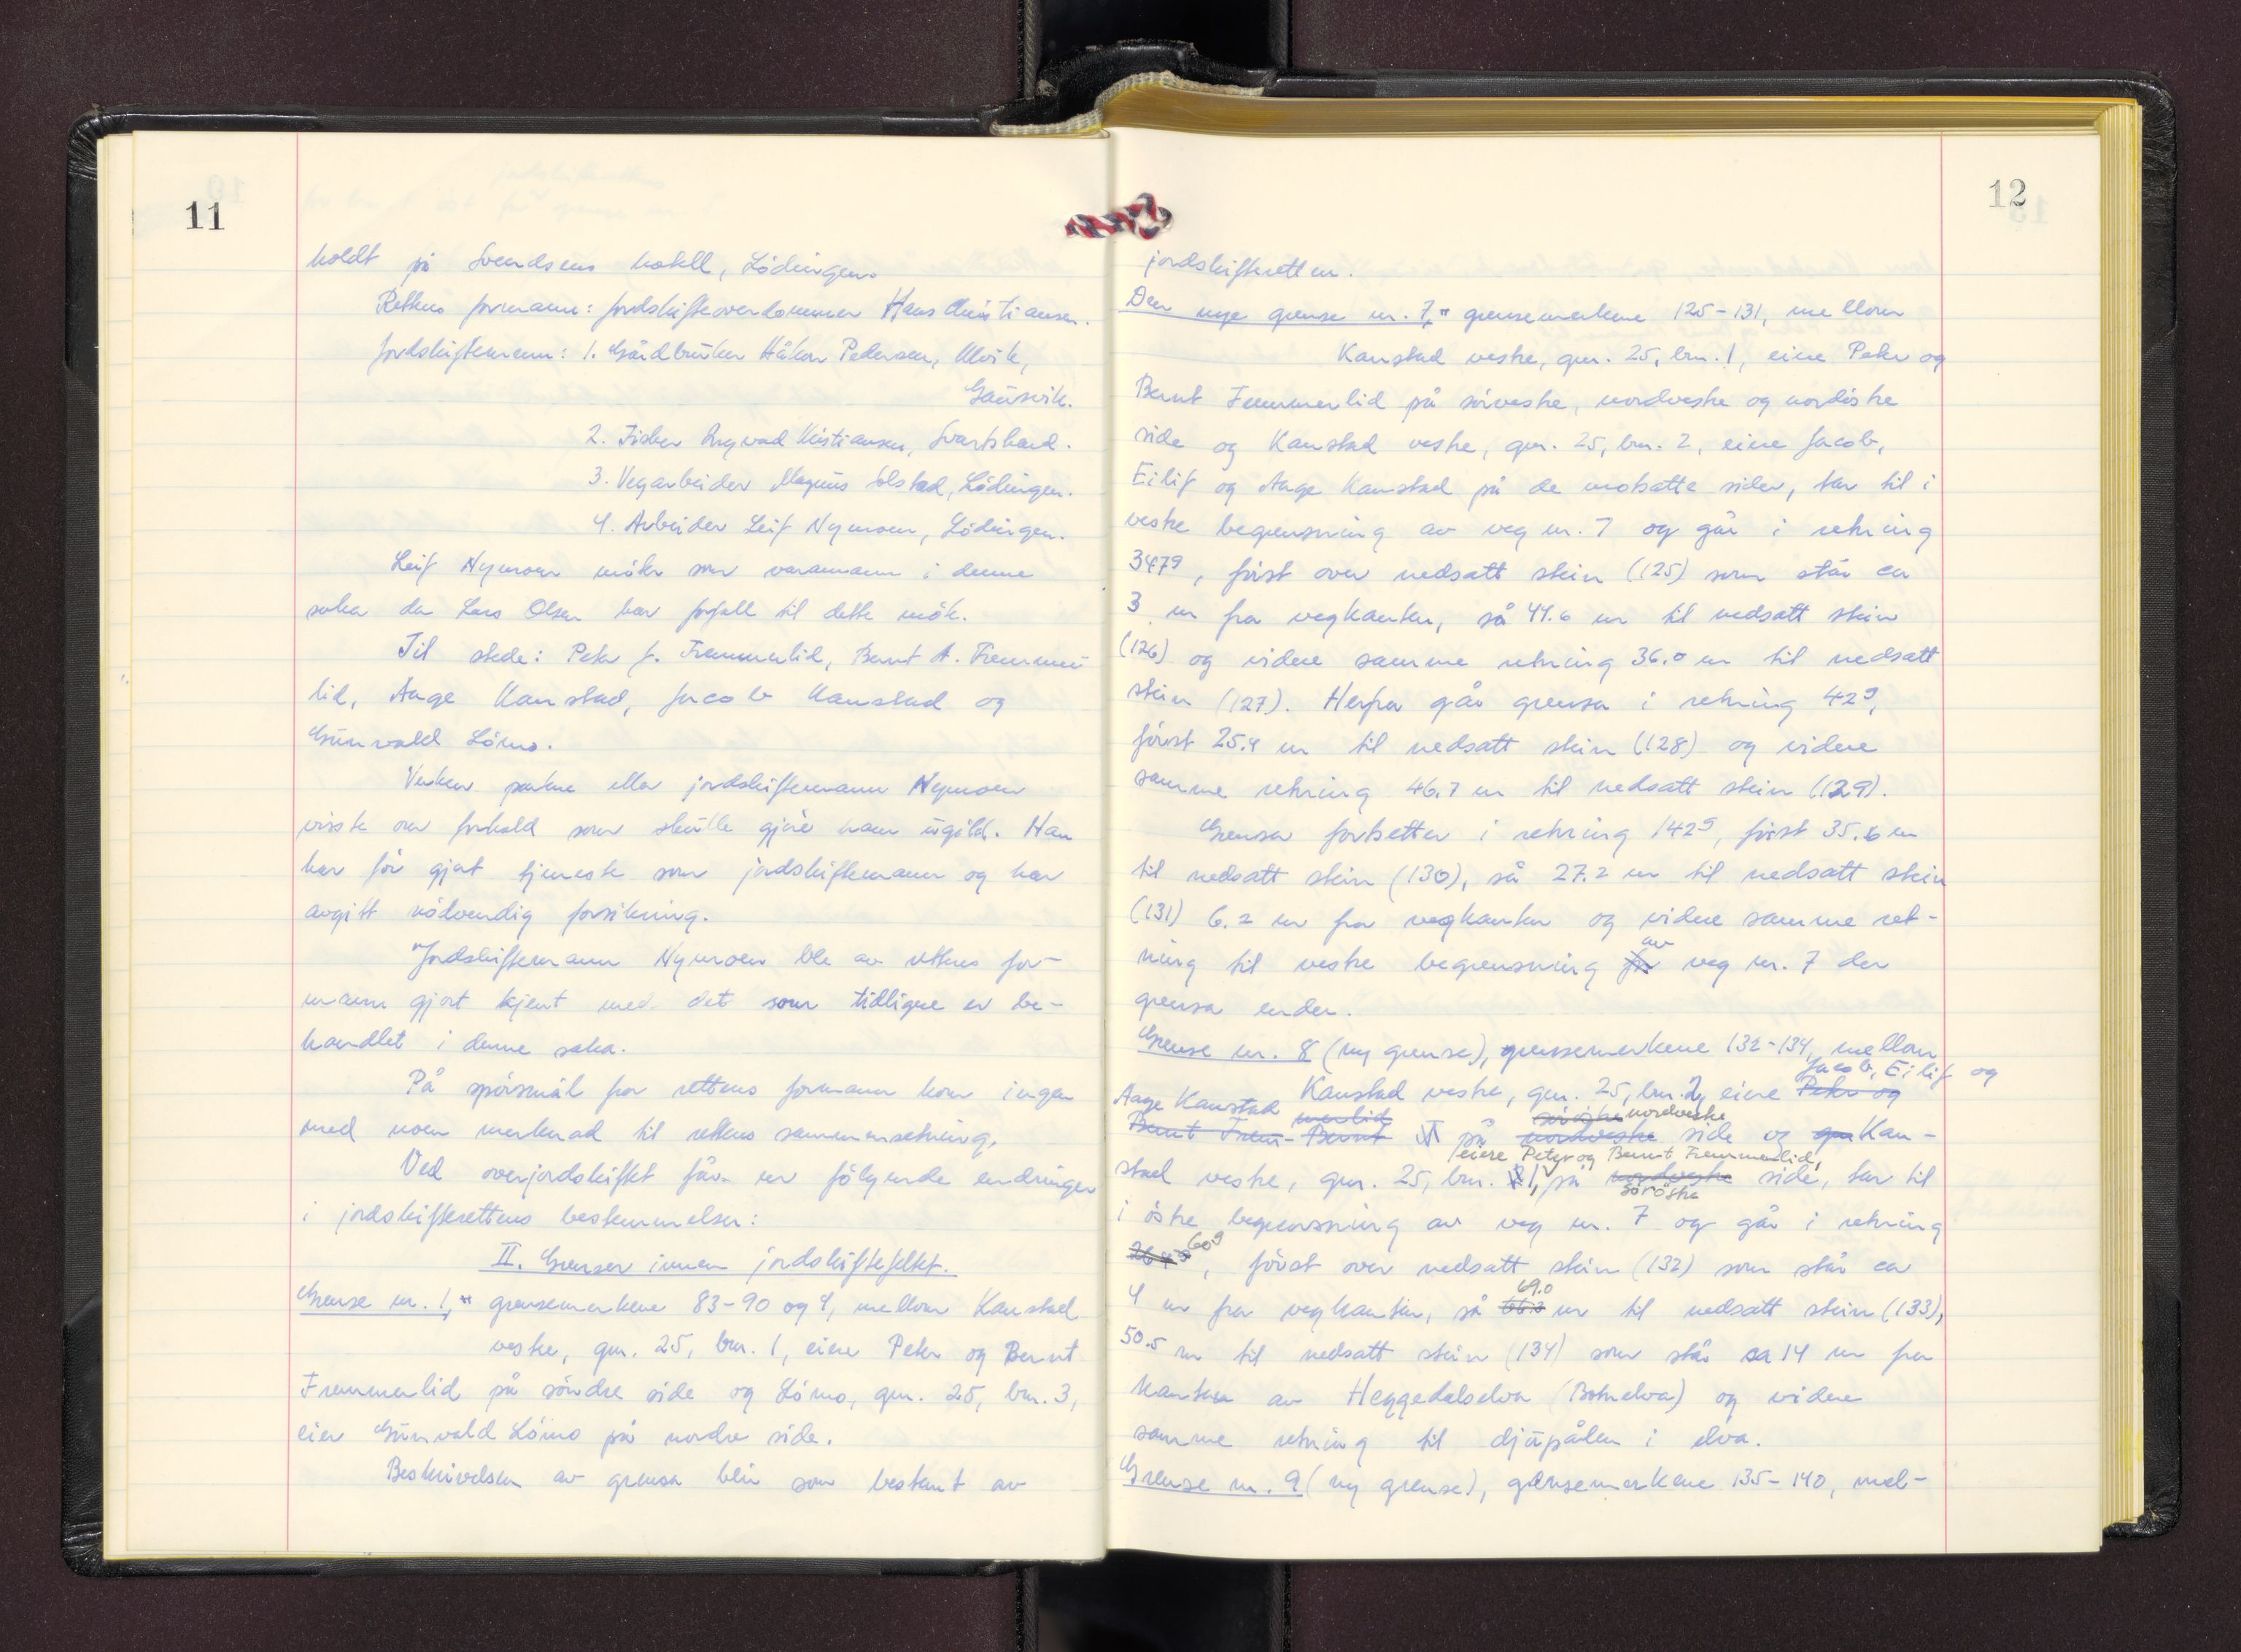 11
holdt på Svendsens hotell, Lödingen.
Rettens formann: Jordskifteoverdommer Hans Christiansen.
Jordskiftemenn: 1. Gårdbruker Håkon Pedersen, Ulvik,
Gausvik.
2. Fisker Ingvad Kristiansen, Svartskard.
3. Vegarbeider Magnus Solstad, Lödingen.
4. Arbeider Leif Nymoen, Lödingen.
Leif Nymoen möter som varamann i denne
saka da Lars Olsen har forfall til dette möte.
Til stede: Peter J. Fremmerlid, Bernt A. Fremmer
lid, Aage Kanstad, Jacob Kanstad og
Gunvald Lömo.
Verken partene eller jordskiftemann Nymoen
visste om forhold som skulle gjöre ham ugild. Han
har för gjort tjeneste som jordskiftemann og har
avgitt nödvendig forsikring.
Jordskiftemann Nymoen ble av rettens for-
mann gjort kjent med det som tidligere er be-
handlet i denne saka.
På spörsmål fra rettens formann kom ingen
med noen merknad til rettens sammensetning.
Ved overjordskiftet får en fölgende endringer
i jordskifterettens bestemmelser:
II. Grenser innen jordskiftefeltet.
Grense nr. 1," grensemerkene 83-90 og 4, mellom Kanstad
vestre, gnr. 25, bnr. 1, eiere Peter og Bernt
Fremmerlid på söndre side og Lömo, gnr. 25, bnr. 3,
eier Gunvald Lömo på nordre side.
Beskrivelsen av grensa blir som bestemt av
12
jordskifteretten.
Den nye grense nr. 7," grensemerkene 125-131, mellom
Kanstad vestre, gnr. 25, bnr. 1, eiere Peter og
Bernt Fremmerlid på sörvestre, nordvestre og nordöstre
side og Kanstad vestre, gnr. 25, bnr. 2, eiere Jacob,
Eilif og Aage Kanstad på de motsatte sider, tar til i
vestre begrensning av veg nr. 7 og går i retning
347g, först over nedsatt stein (125) som står ca
3 m fra vegkanten, så 44.6 m til nedsatt stein
(126) og videre samme retning 36.0 m til nedsatt
stein (127). Herfra går grensa i retning 42g,
först 25.4 m til nedsatt stein (128) og videre
samme retning 46.7 m til nedsatt stein (129).
Grensa fortsetter i retning 142g, först 35.6 m
til nedsatt stein (130), så 27.2 m til nedsatt stein
(131) 6.2 m fra vegkanten og videre samme ret-
av
ning til vestre begrensning fra veg nr. 7 der
grensa ender.
Grense nr. 8 (ny grense), grensemerkene 132-134, mellom
Jacob, Eilif og
Kanstad vestre, gnr. 25, bnr. 2, eiere Peter og
Aage Kanstad merlid söröstre nordvestre
Bernt Frem- Bernt på nordvestre side og gnr Kan-
eiere Peter og Bernt Fremmerlid,
stad vestre, gnr. 25, bnr. 1, på nordvestre side, tar til
söröstre
i östre begrensning av veg nr. 7 og går i retning
60g
, först over nedsatt stein (132) som står ca
69.0
4 m fra vegkanten, så m til nedsatt stein (133),
50.5 m til nedsatt stein (134) som står ca 14 m fra
kanten av Heggedalselva (Botnelva) og videre
samme retning til djupålen i elva.
Grense nr. 9 (ny grense), grensemerkene 135-140, mel-